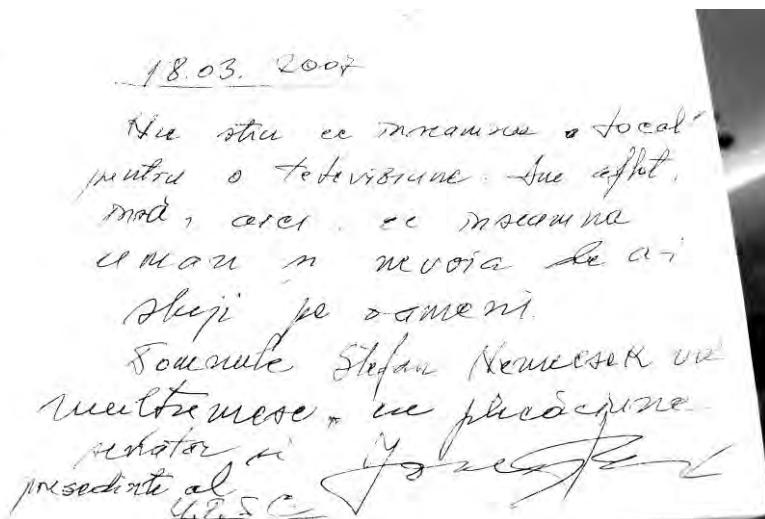 18.03. 2007
Nu stiu ce inseamna "local"
pentru o televiziune. Am aflat,
însă, aici, ce inseamna
uman si nevoia de a-i
sluji pe oameni.
Domnule Stefan Nemecsek va
multumesc, cu plăcăciune
senator si
presedinte al